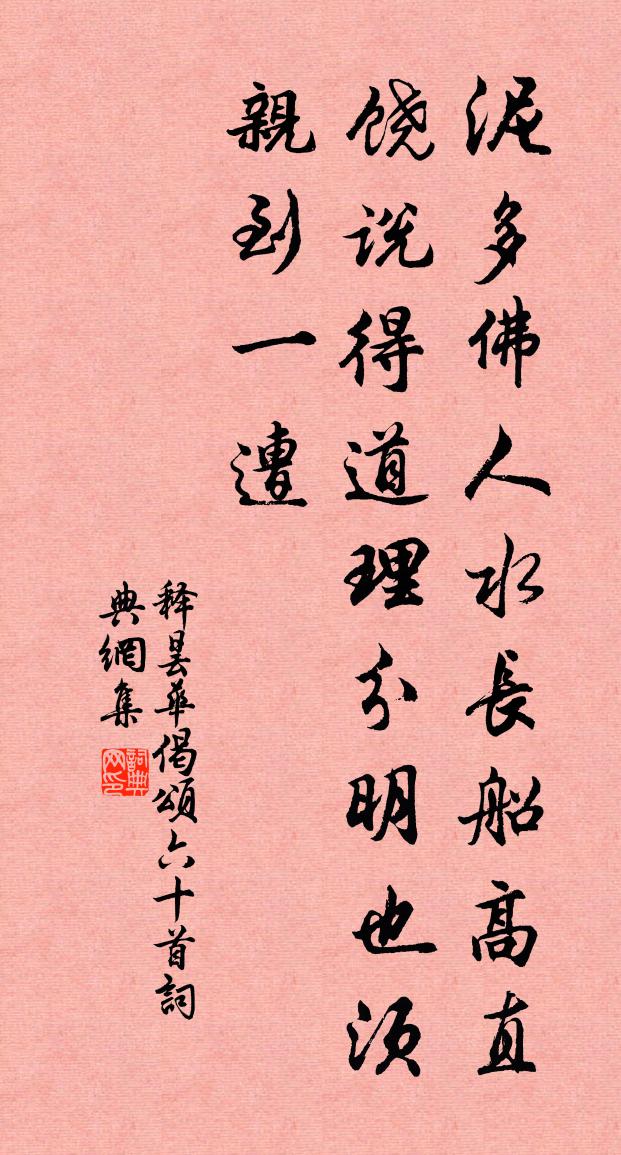 泥多佛人水長船高直
饒説得道理分明也須
親到一遭
释曇華偈頌六十首詞
典網集
詞典
网印